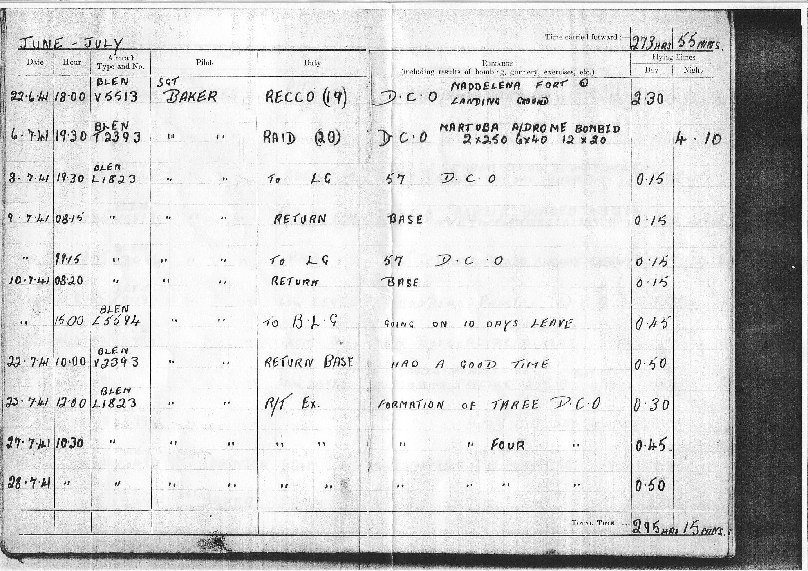 JUNE - JULY
Time carried forward :— 273 HRS 55 MINS.
Date Hour Aircraft Type and No. Pilot Duty Remarks (including results of bombing, gunnery, exercises, etc.) Flying Times Day Night
22·6·41 18·00 BLEN V5513 SGT BAKER RECCO (19) D·C·O MADDELENA FORT & LANDING GROUND 2·30
6·7·41 19·30 BLEN T2393 " " RAID (20) D·C·O MARTUBA A/DROME BOMBED 2×250 6×40 12×20 4·10
8·7·41 19·30 BLEN L1823 " " TO LG 57 D·C·O 0·15
9·7·41 08·15 " " " RETURN BASE 0·15
" 19·15 " " " TO LG 57 D·C·O 0·15
10·7·41 08·20 " " " RETURN BASE 0·15
" 15·00 BLEN L5594 " " TO B·L·G GOING ON 10 DAYS LEAVE 0·45
22·7·41 10·00 BLEN V2393 " " RETURN BASE HAD A GOOD TIME 0·50
23·7·41 12·00 BLEN L1823 " " R/T EX. FORMATION OF THREE D·C·O 0·30
27·7·41 10·30 " " " " " " " FOUR " 0·45
28·7·41 " " " " " " " " " " 0·50
TOTAL TIME ... 295 HRS 15 MINS.